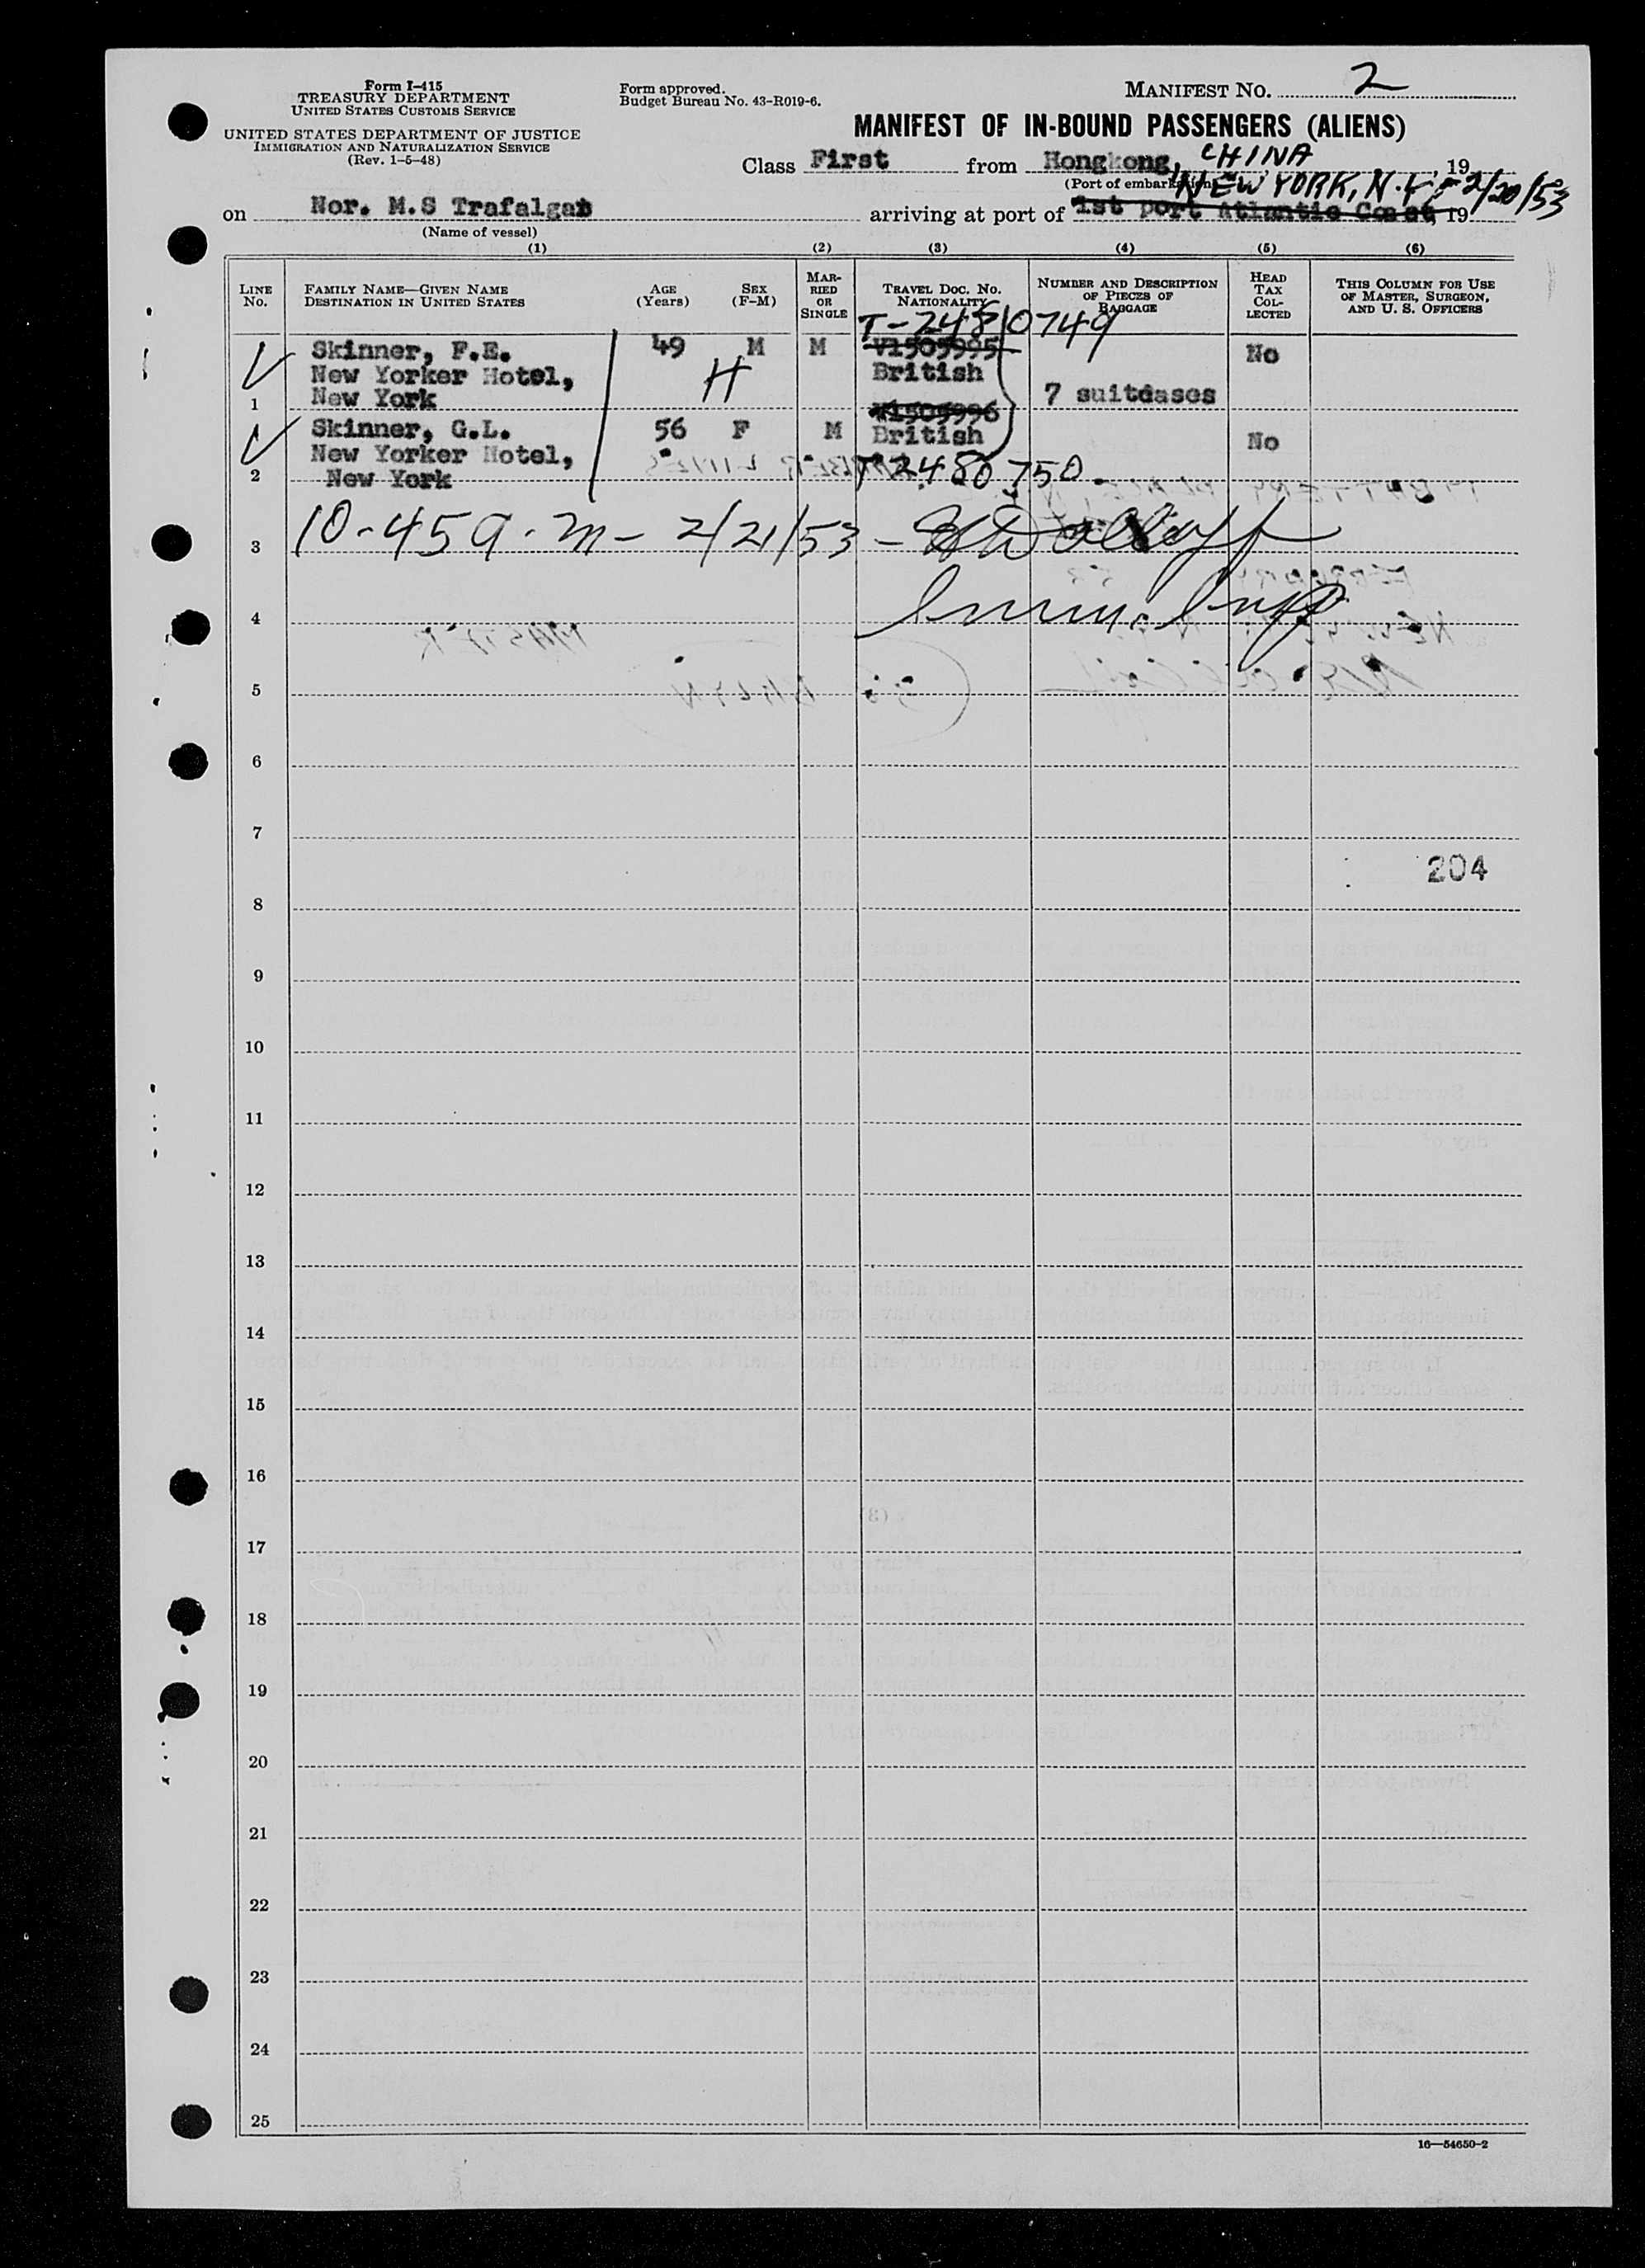 Form I-415
TREASURY DEPARTMENT
UNITED STATES CUSTOMS SERVICE
UNITED STATES DEPARTMENT OF JUSTICE
IMMIGRATION AND NATURALIZATION SERVICE
(Rev. 1-5-48)
Form approved.
Budget Bureau No. 43-R019-6.
MANIFEST NO. 2
MANIFEST OF IN-BOUND PASSENGERS (ALIENS)
Class First from Hongkong, CHINA, 19
(Port of embarkation)
NEW YORK, N.Y. 2/20/53
on Nor. M.S Trafalgar arriving at port of 1st port Atlantic Coast, 19
(Name of vessel)
(1) (2) (3) (4) (5) (6)
LINE No. FAMILY NAME—GIVEN NAME DESTINATION IN UNITED STATES AGE (Years) SEX (F-M) MARRIED OR SINGLE TRAVEL DOC. NO. NATIONALITY NUMBER AND DESCRIPTION OF PIECES OF BAGGAGE HEAD TAX COLLECTED THIS COLUMN FOR USE OF MASTER, SURGEON, AND U. S. OFFICERS
T-24810749
Skinner, F.E. 49 M M V1505995 No
New Yorker Hotel, H British
1 New York 7 suitcases
V1505996
Skinner, G.L. 56 F M British No
New Yorker Hotel,
2 New York T2480750
3 10-45 a.m- 2/21/53 -
4 Imm. Insp
5
6
7
204
8
9
10
11
12
13
14
15
16
17
18
19
20
21
22
23
24
25
16—54650-2